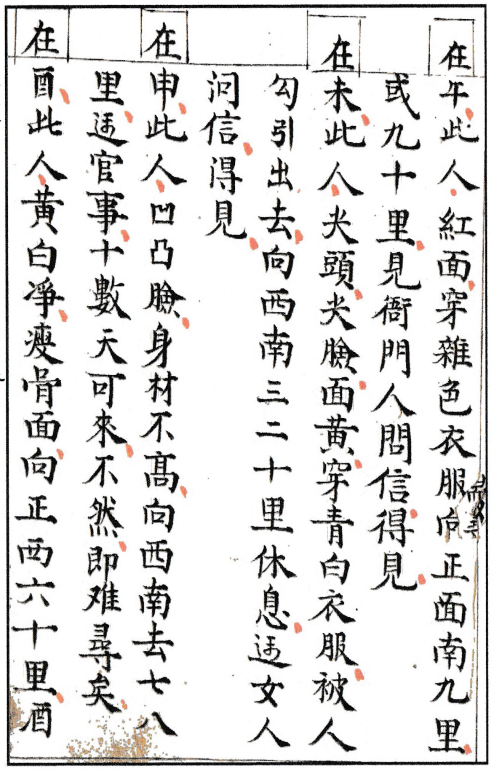 在午此人紅面穿雜色衣服向正面南九里
或九十里見衙門人問信得見
在未此人尖頭尖臉面黃穿青白衣服被人
勾引出去向西南三二十里休息遇女人
问信得見
在申此人凹凸臉身材不高向西南去七八
里遇官事十數天可來不然即难尋矣
在酉此人黃白凈瘦骨面向正西六十里酉